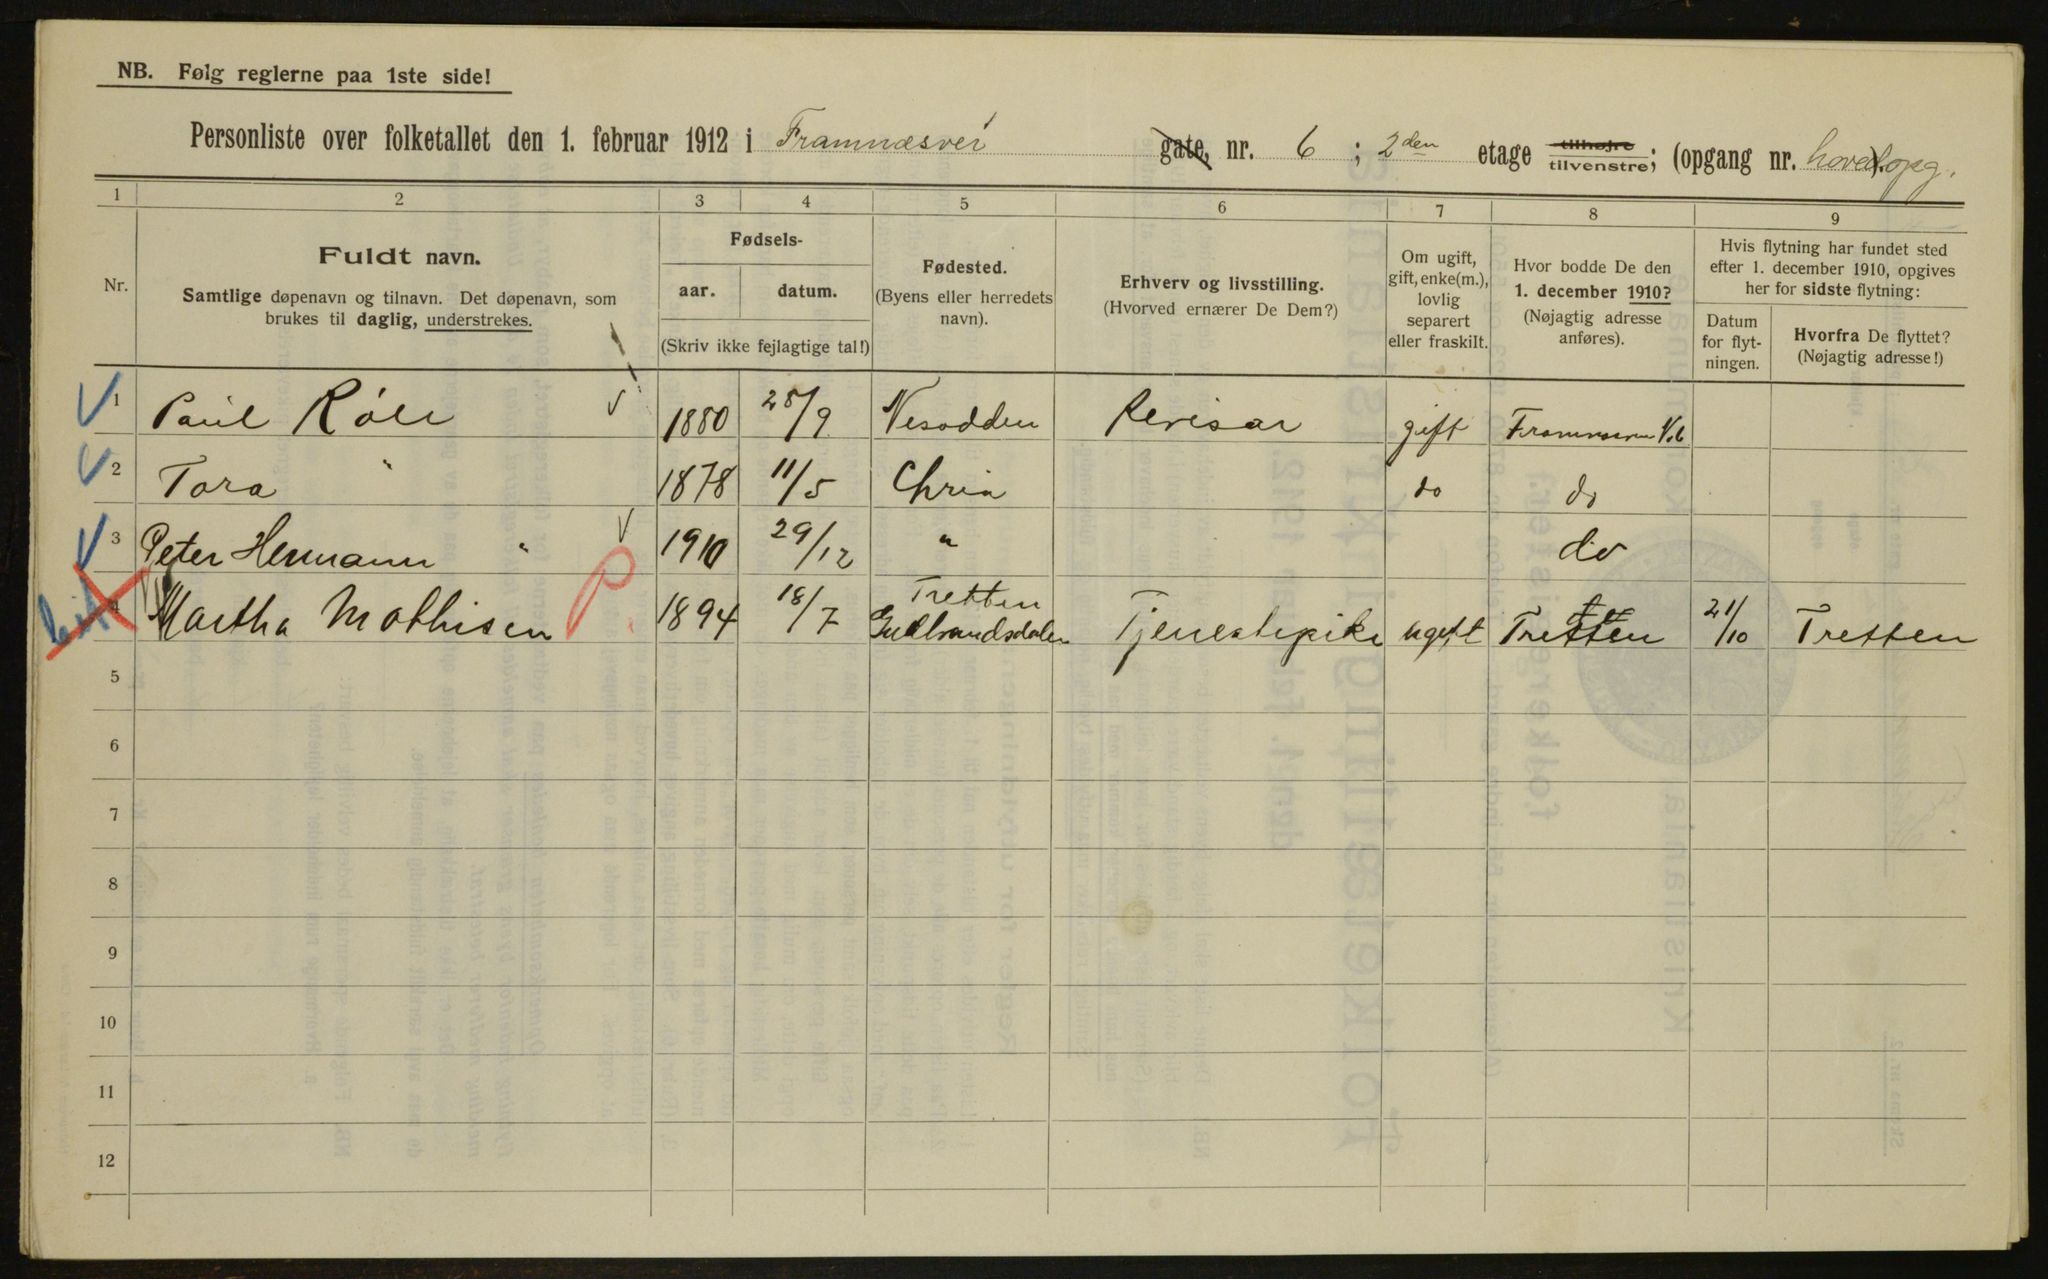 NB. Følg reglerne paa 1ste side!
Personliste over folketallet den 1. februar 1912 i Framnæsvei gate, nr. 6 ; 2den etage tilhøjre tilvenstre; (opgang nr. hovedopg.).
1 2 3 4 5 6 7 8 9
Nr.
Fuldt navn.
Samtlige døpenavn og tilnavn. Det døpenavn, som
brukes til daglig, understrekes.
Fødsels-
aar. datum.
(Skriv ikke fejlagtige tal!)
Fødested.
(Byens eller herredets
navn).
Erhverv og livsstilling.
(Hvorved ernærer De Dem?)
Om ugift,
gift, enke(m.),
lovlig
separert
eller fraskilt.
Hvor bodde De den
1. december 1910?
(Nøjagtig adresse
anføres).
Hvis flytning har fundet sted
efter 1. december 1910, opgives
her for sidste flytning:
Datum
for flyt-
ningen.
Hvorfra De flyttet?
(Nøjagtig adresse!)
1 Paul 1880 Nesodden Revisor gift
2 Tora " 1878 11/5 Chria do do
3 Peter Hermann " 1910 29/12 " do
4 Martha Mathisen 1894 18/7 Tretten Gudbrandsdalen Tjenestepike ugift Tretten 21/10 Tretten
5
6
7
8
9
10
11
12